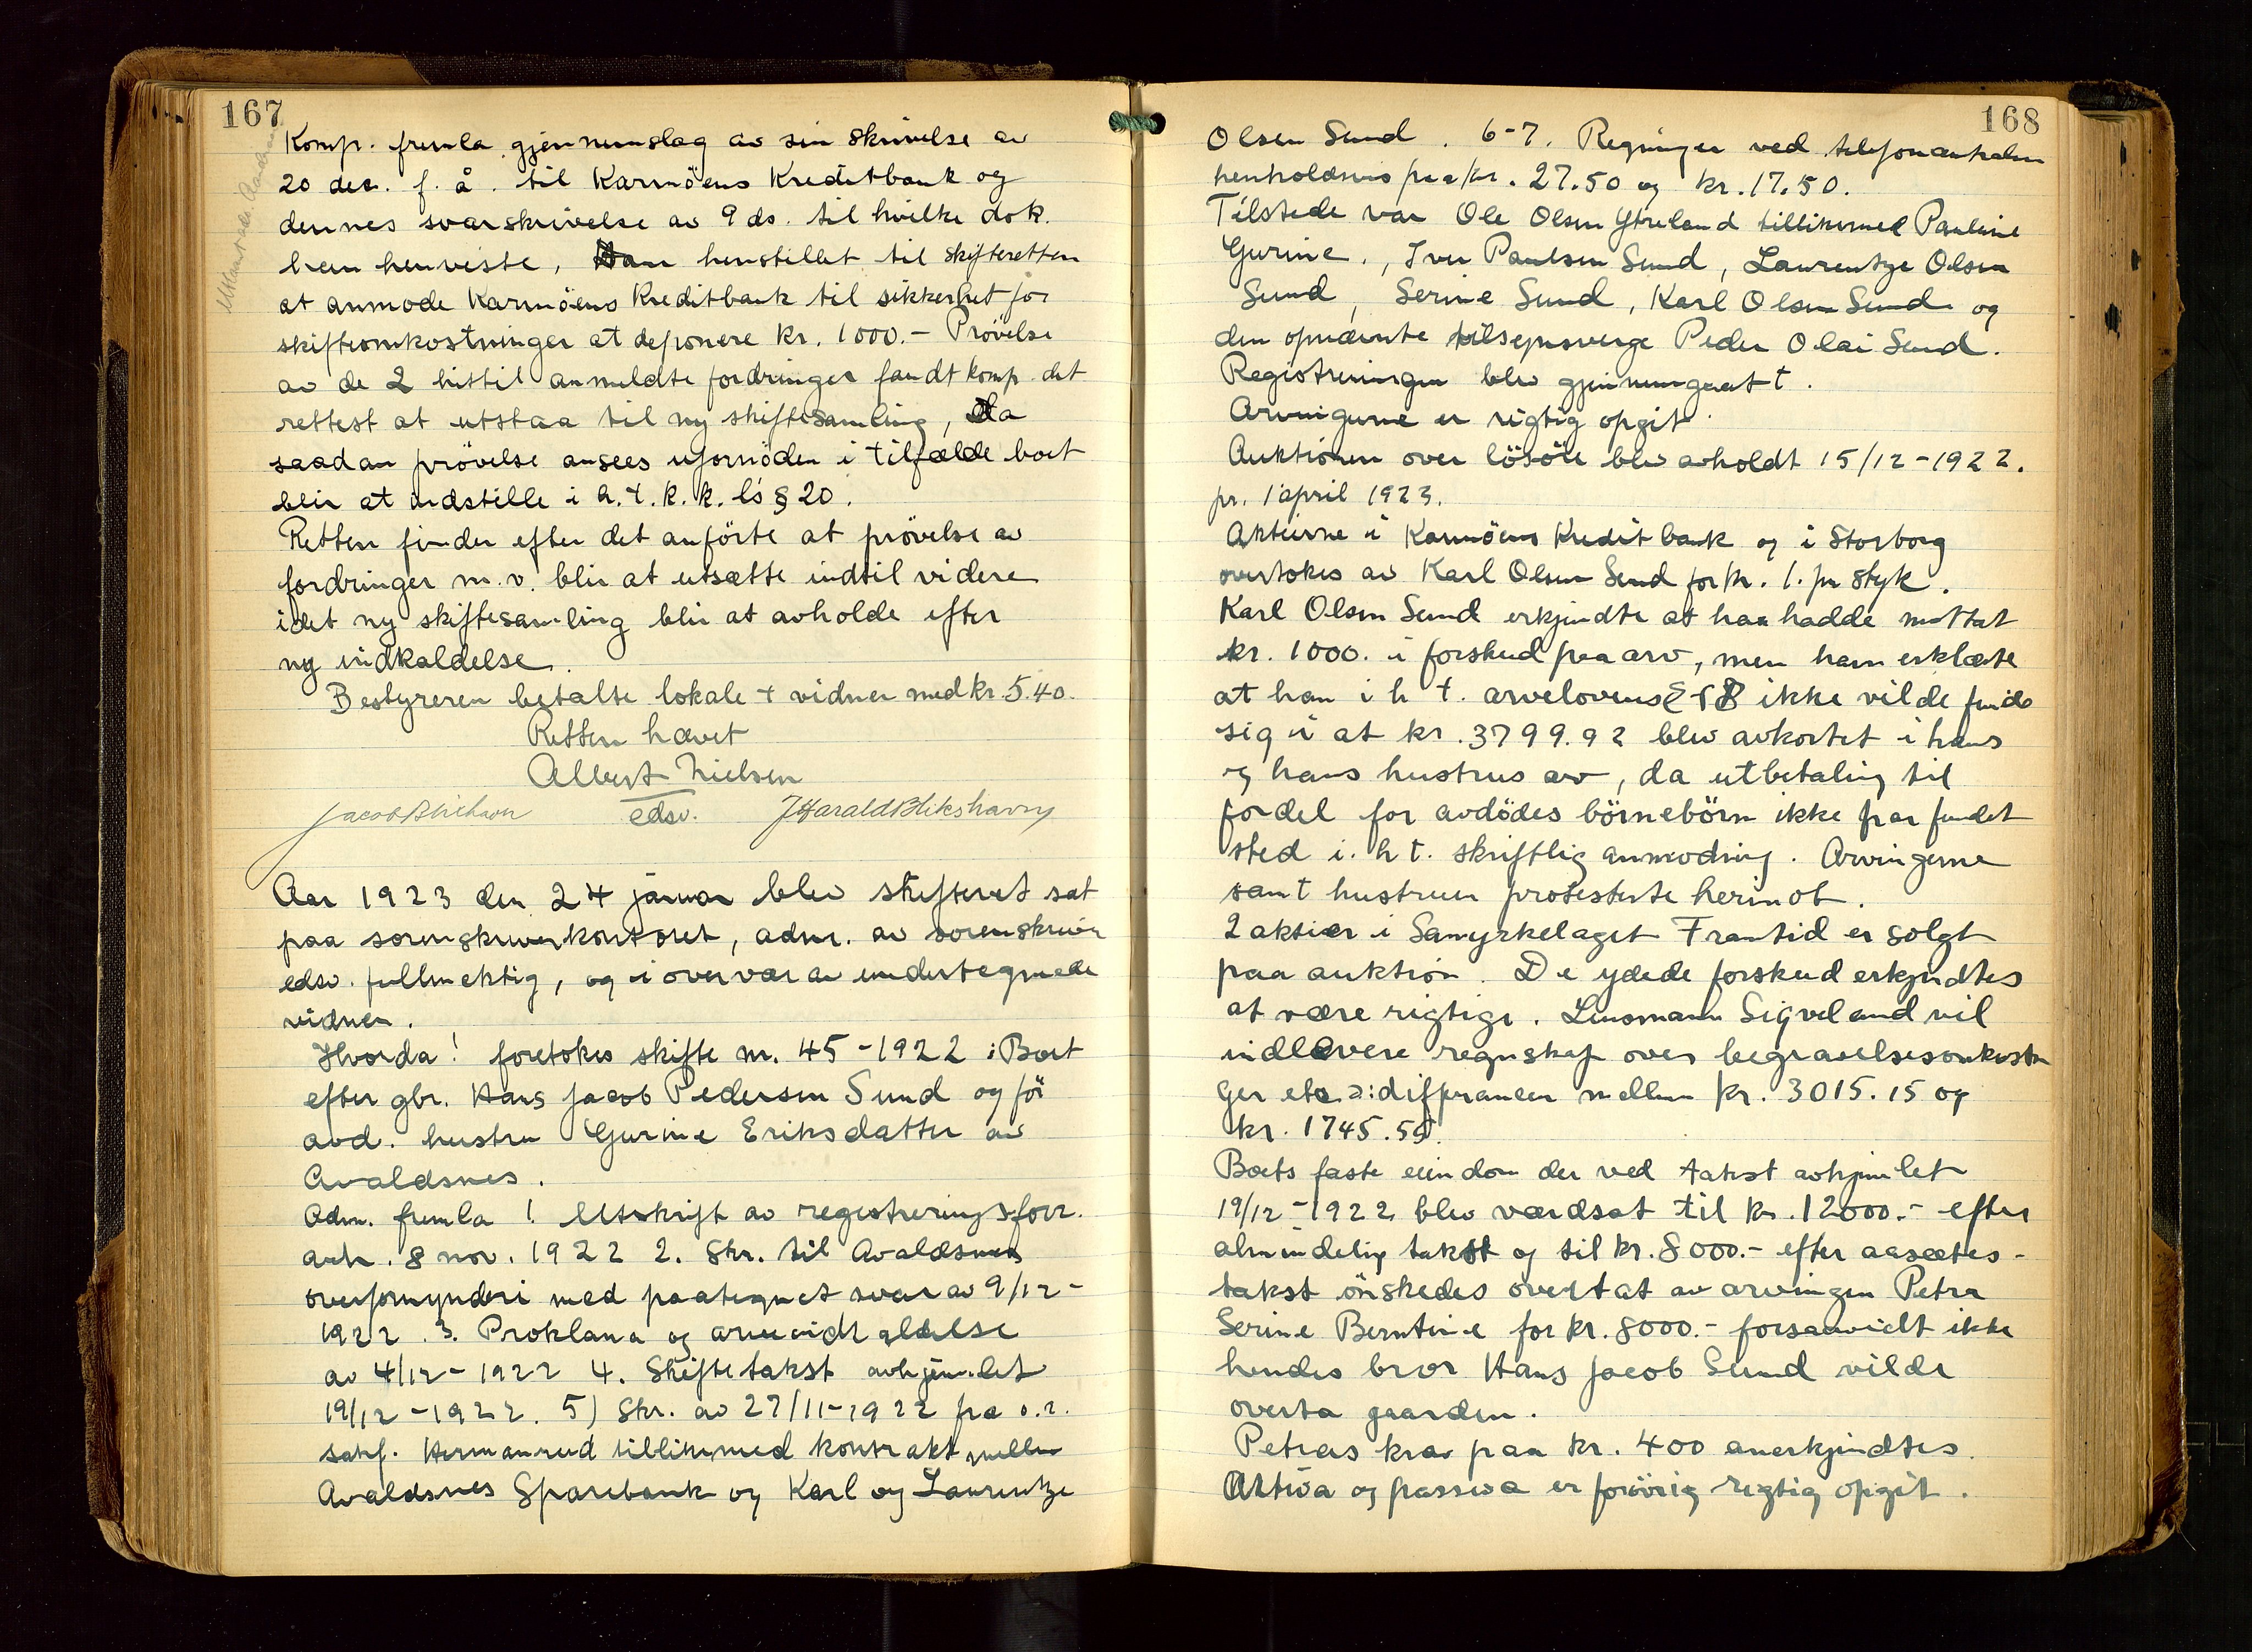 167
Komp. fremla gjennemslag av sin skrivelse av
20 des. f. å. til Karmöens Kreditbank og
dennes svarskrivelse av 9 ds. til hvilke dok.
han henviste, Han henstillet til skifteretten
at anmode Karmöens Kreditbank til sikkerhet for
skifteomkostninger at deponere kr. 1000.- Prövelse
av de 2 hittil anmeldte fordringer fandt komp. det
rettest at utstaa til ny skiftesamling, da
saadan prövelse ansees ufornöden i tilfælde boet
blir at indstille i h. t. k. k. l's § 20.
Retten finder efter det anförte at prövelse av
fordringer m. v. blir at utsætte indtil videre
idet ny skiftesamling blir at avholde efter
ny indkaldelse.
Bestyreren betalte lokale + vidner med kr. 5.40.
Retten hævet
Albert Nielsen
Jacob Blikhavn edsv. J Harald Blikshavn
Aar 1923 den 24 januar blev skifteret sat
paa sorenskriverkontoret, adm. av sorenskriver
edsv. fullmektig, og i overvær av undertegnede
vidner.
Hvorda! foretokes skifte nr. 45-1922 i Boet
efter gbr. Hans Jacob Pedersen Sund og för
avd. hustru Gurine Eriksdatter av
Avaldsnes.
Adm. fremla 1. Utskrift av registreringsforr.
avh. 8 nov. 1922 2. Skr. til Avaldsnes
overformynderi med paategnet svar av 9/12-
1922. 3. Proklama og arveindkaldelse
av 4/12-1922 4. Skiftetakst avhjemlet
19/12-1922. 5) Skr. av 27/11-1922 fra o.r.
sakf. Hermanrud tillikemed kontrakt mellem
Avaldsnes Sparebank og Karl og Laurentze
168
Olsen Sund. 6-7. Regninger ved telefoncentralen
henholdsvis paa kr. 27.50 og kr. 17.50.
Tilstede var Ole Olsen Ytreland tillikemed Pauline
Gurine, Iver Paulsen Sund, Laurentze Olsen
Sund, Serine Sund, Karl Olsen Sund og
den opnævnte tilsynsverge Peder Olai Sund.
Registreringen blev gjennemgaatt.
Arvingerne er rigtig opgit.
Auktionen over lösöre blev avholdt 15/12-1922.
pr. 1 april 1923.
Aktierne i Karmöens Kreditbank og i Storborg
overtokes av Karl Olsen Sund for kr. 1. pr styk.
Karl Olsen Sund erkjendte at han hadde mottat
kr. 1000. i forskud paa arv, men han erklærte
at han i h t. arvelovens § ikke vilde finde
sig i at kr. 3799.92 blev avkortet i hans
og hans hustrus arv, da utbetaling til
fordel for avdödes börnebörn ikke har fundet
sted i. h t. skriftlig anmodning. Arvingerne
samt hustruen protesterte herimot.
2 aktier i Samyrkelaget Framtid er solgt
paa auktion. De ydede forskud erkjendtes
at være rigtige. Lensmann Sigveland vil
indlevere regnskap over begravelsesomkostnin
ger etc. ɔ: differancen mellem kr. 3015.15 og
kr. 1745.55.
Boets faste eiendom der ved takst avhjemlet
19/12-1922 blev værdsat til kr. 12000.- efter
almindelig takst og til kr. 8000.- efter aasætes-
takst önskedes overtat av arvingen Petra
Serine Berntine for kr. 8000.- forsaavidt ikke
hendes bror Hans Jacob Sund vilde
overta gaarden.
Petras krav paa kr. 400 anerkjendtes.
Aktiva og passiva er forövrig rigtig opgit.